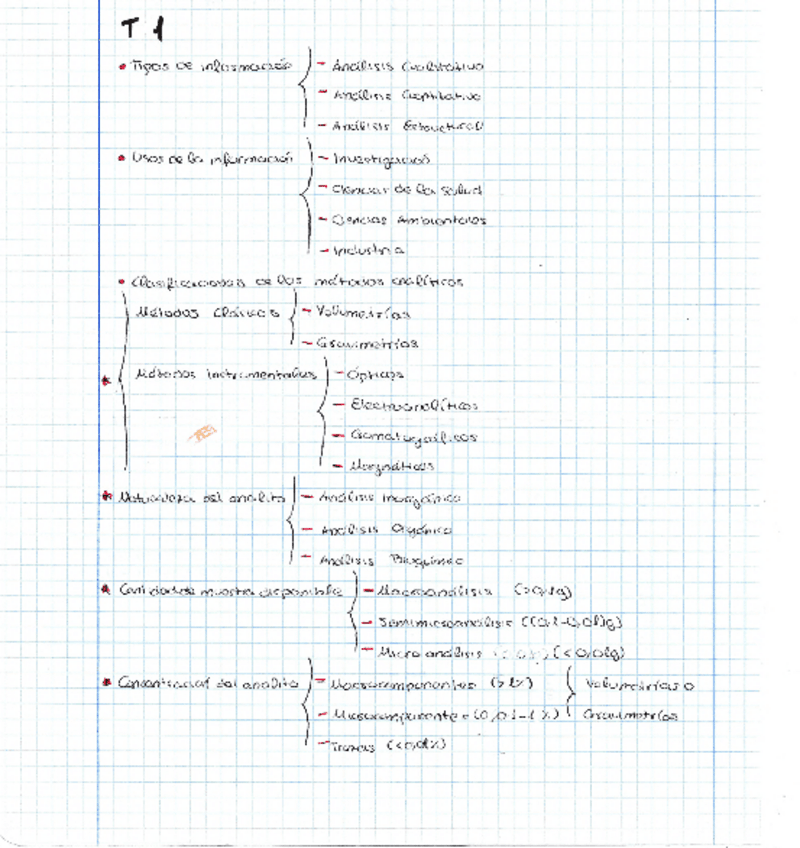 T 1
• Tipos de información
- Análisis Cualitativo
- Análisis Cuantitativo
- Análisis Estructural
• Usos de la información
- Investigación
- Ciencias de la Salud
- Ciencias Ambientales
- Industria
• Clasificaciones de los métodos analíticos
* Métodos Clásicos
- Volumetrías
- Gravimetrías
Métodos instrumentales
- Ópticos
- Electroanalíticos
- Cromatográficos
- Magnéticos
* Naturaleza del analito
- Análisis Inorgánico
- Análisis Orgánico
- Análisis Bioquímico
* Cantidad de muestra disponible
- Macroanálisis (>0,1g)
- Semimicroanálisis ((0,1-0,01)g)
- Micro análisis (<0,01g)
* Concentración del analito
- Macrocomponentes (>1%)
- Microcomponentes (0,01-1%)
Volumetrías o
Gravimetrías
- Trazas (<0,01%)